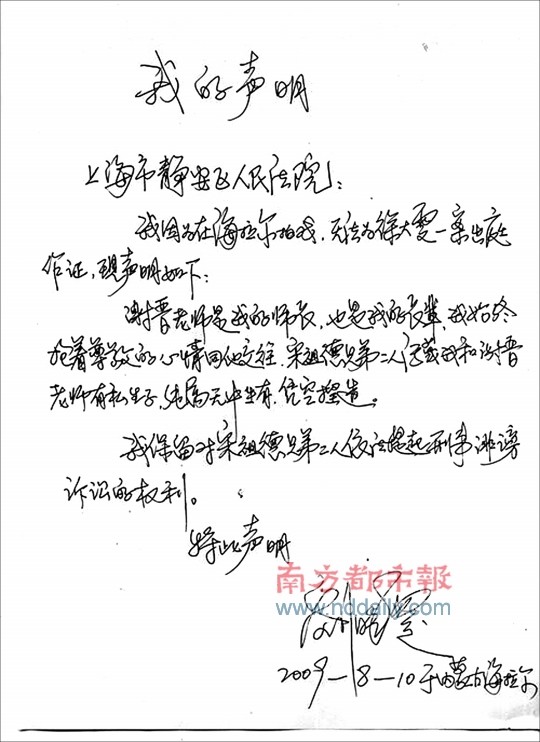 我的声明
上海市静安区人民法院：
我因为在海拉尔拍戏，无法为徐大雯一案出庭
作证，现声明如下：
谢晋老师是我的师长，也是我的长辈，我始终
抱着尊敬的心情同他交往，宋祖德兄弟二人污蔑我和谢晋
老师有私生子，纯属无中生有，凭空捏造。
我保留对宋祖德兄弟二人依法提起刑事诽谤
诉讼的权利。
特此声明
南方都市報
www.nddaily.com
刘晓庆
2009-8-10于内蒙古海拉尔